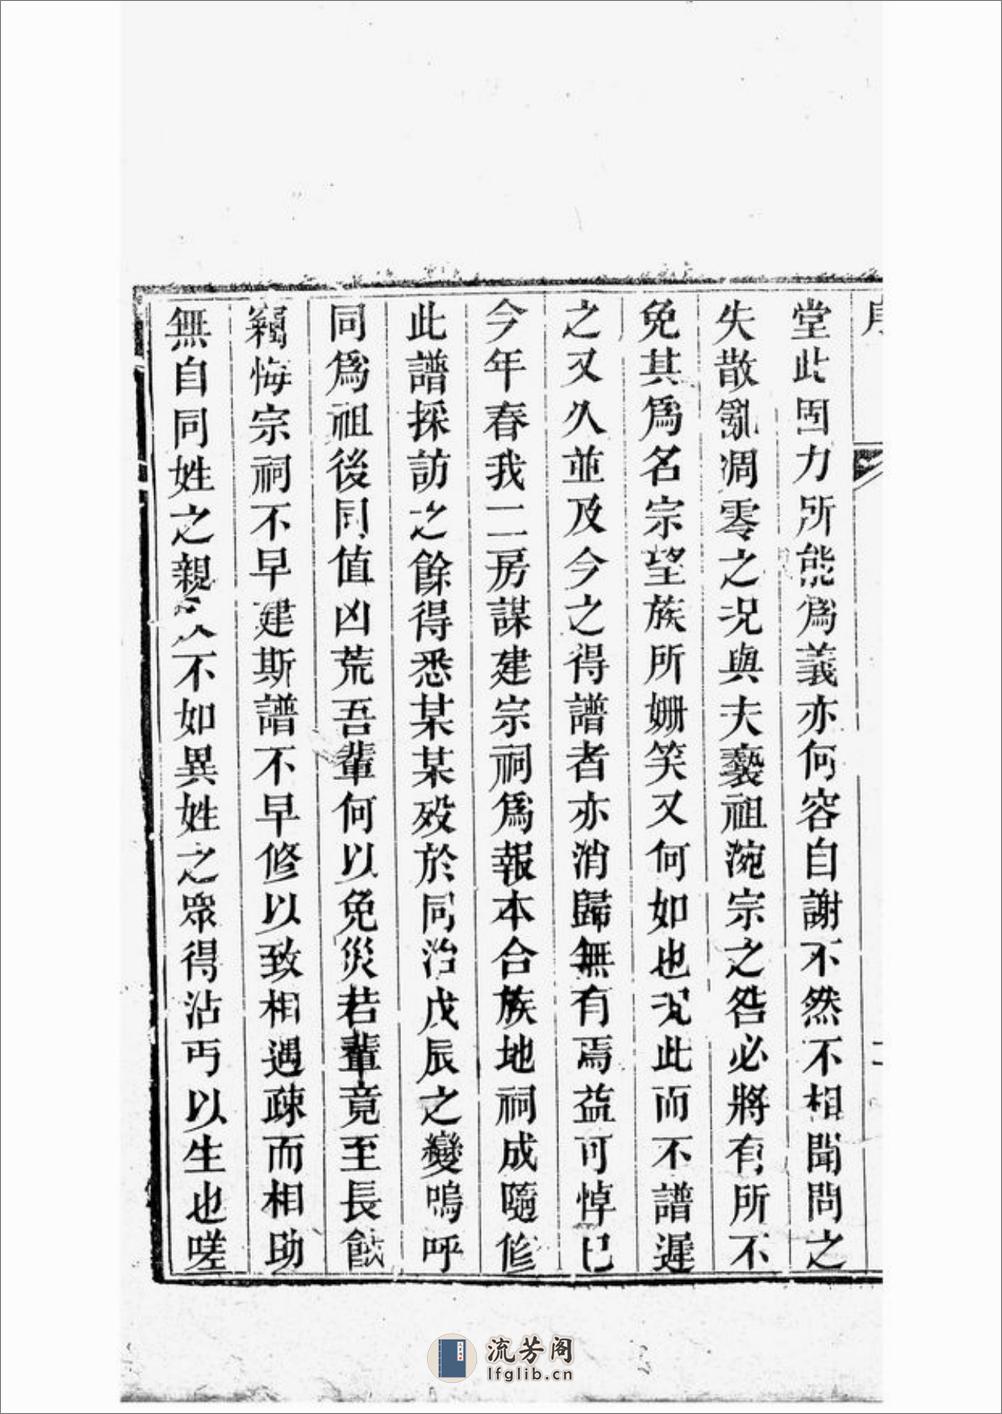 堂此固力所能爲義亦何容自謝不然不相聞問之
失散亂凋零之况與夫褻祖涴宗之咎必將有所不
免其爲名宗望族所姍笑又何如也况此而不譜遲
之又久並及今之得譜者亦消歸無有焉益可悼已
今年春我二房謀建宗祠爲報本合族地祠成隨修
此譜採訪之餘得悉某某歿於同治戊辰之變嗚呼
同爲祖後同值凶荒吾輩何以免災若輩竟至長餓
竊悔宗祠不早建斯譜不早修以致相遇疎而相助
無自同姓之親不如異姓之衆得沾丐以生也嗟
流芳阁
lfglib.cn